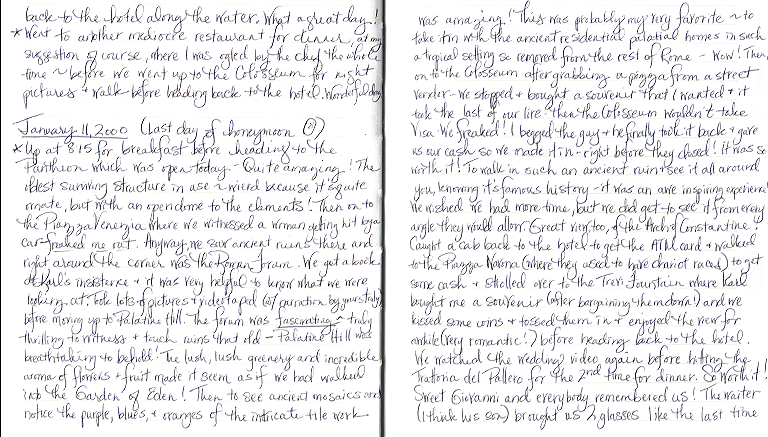 back to the hotel along the water. What a great day!
* Went to another mediocre restaurant for dinner, at my
suggestion of course, where I was ogled by the chef the whole
time ~ before we went up to the Colosseum for night
pictures + walk before heading back to the hotel. Wonderful day
January 11, 2000 (Last day of honeymoon ☹)
* Up at 8:15 for breakfast before heading to the
Pantheon which was open today - Quite amazing! The
oldest surviving structure in use ~ weird because it's quite
ornate, but with an open dome to the elements! Then on to
the Piazza Venezia where we witnessed a woman getting hit by a
car - freaked me out. Anyway, we saw ancient ruins there and
right around the corner was the Roman Forum. We got a book
at Karl's insistence + it was very helpful to know what we were
looking at. Took lots of pictures + videotaped (w/ narration by yours truly)
before moving up to Palatine Hill. The forum was fascinating - truly
thrilling to witness + touch ruins that old - Palatine Hill was
breathtaking to behold! The lush, lush greenery and incredible
aroma of flowers + fruit made it seem as if we had walked
into the Garden of Eden! Then to see ancient mosaics and
notice the purple, blues, + oranges of the intricate tile work
was amazing! This was probably my very favorite ~ to
take it in with the ancient residential palatial homes in such
a tropical setting so removed from the rest of Rome - Wow! Then,
on to the Colosseum after grabbing a pizza from a street
vendor - we stopped + bought a souvenir that I wanted + it
took the last of our lire - then the Colosseum wouldn't take
Visa. We freaked! I begged the guy + he finally took it back + gave
us our cash so we made it in - right before they closed! It was so
worth it! To walk in such an ancient ruin + see it all around
you, knowing it's famous history - it was an awe inspiring experience!
We wished we had more time, but we did get to see it from every
angle they would allow. Great view, too, of the Arch of Constantine!
Caught a cab back to the hotel to get the ATM card + walked
to the Piazza Navona (where they used to have chariot races) to get
some cash + strolled over to the Trevi Fountain where Karl
bought me a souvenir (after bargaining them down!) and we
kissed some coins + tossed them in + enjoyed the view for
awhile (Very romantic!) before heading back to the hotel.
We watched the wedding video again before hitting the
Trattoria del Pallero for the 2nd time for dinner. So worth it!
Sweet Giovanni and everybody remembered us! The waiter
(I think his son) brought us 2 glasses like the last time